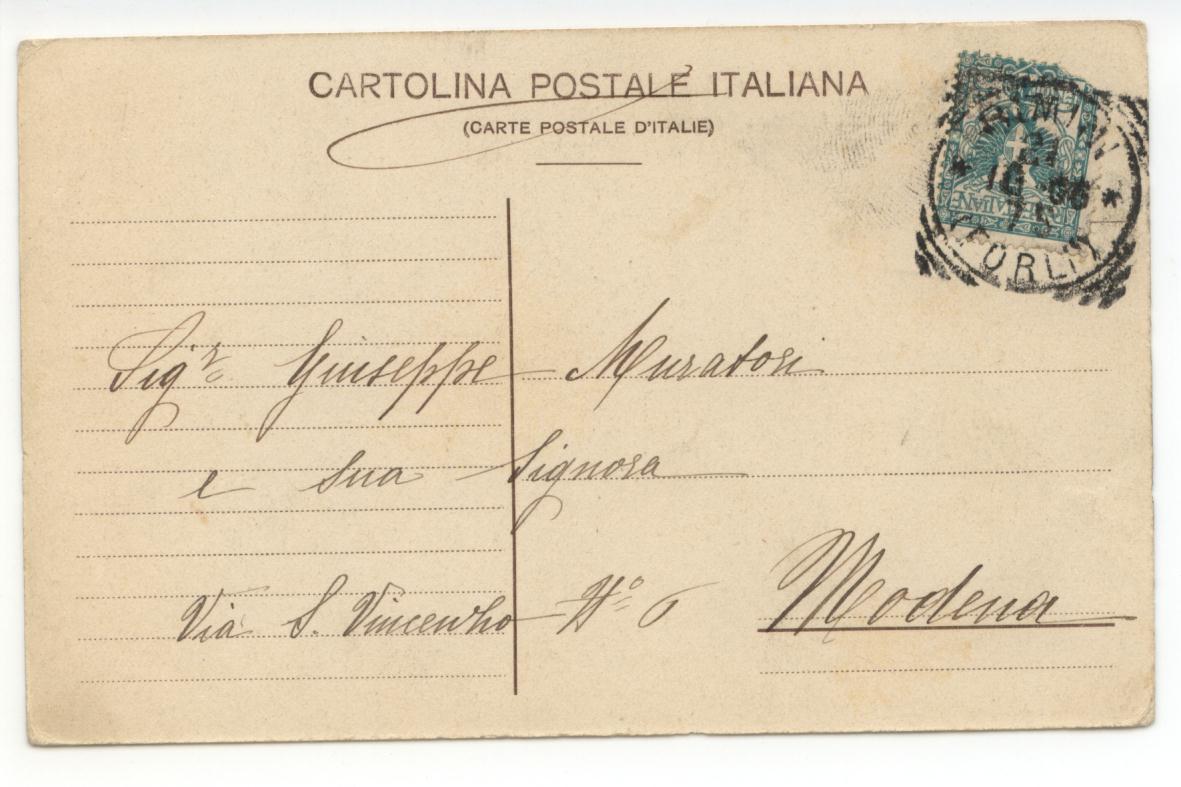 CARTOLINA POSTALE ITALIANA
(CARTE POSTALE D'ITALIE)
RIMINI
21
10 06
7 S
(FORLI)
Sigr. Giuseppe Muratori
e sua Signora
Via S. Vincenzo No 6
Modena